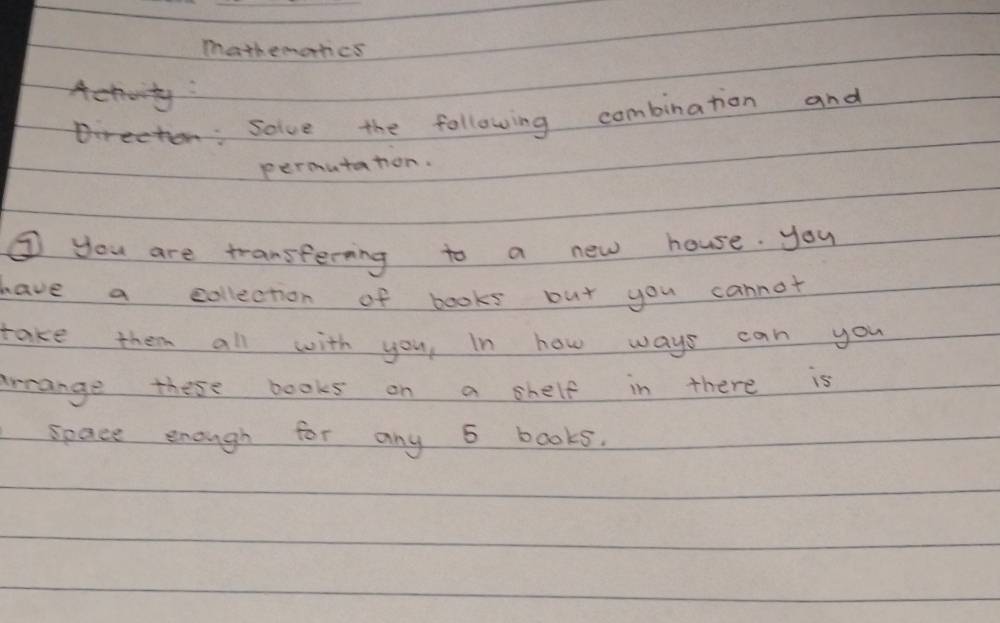 Mathematics
Activity:
Direction: Solve the following combination and
permutation.
① You are transferring to a new house. You
have a collection of books but you cannot
take them all with you, In how ways can you
arrange these books on a shelf in there is
space enough for any 5 books.